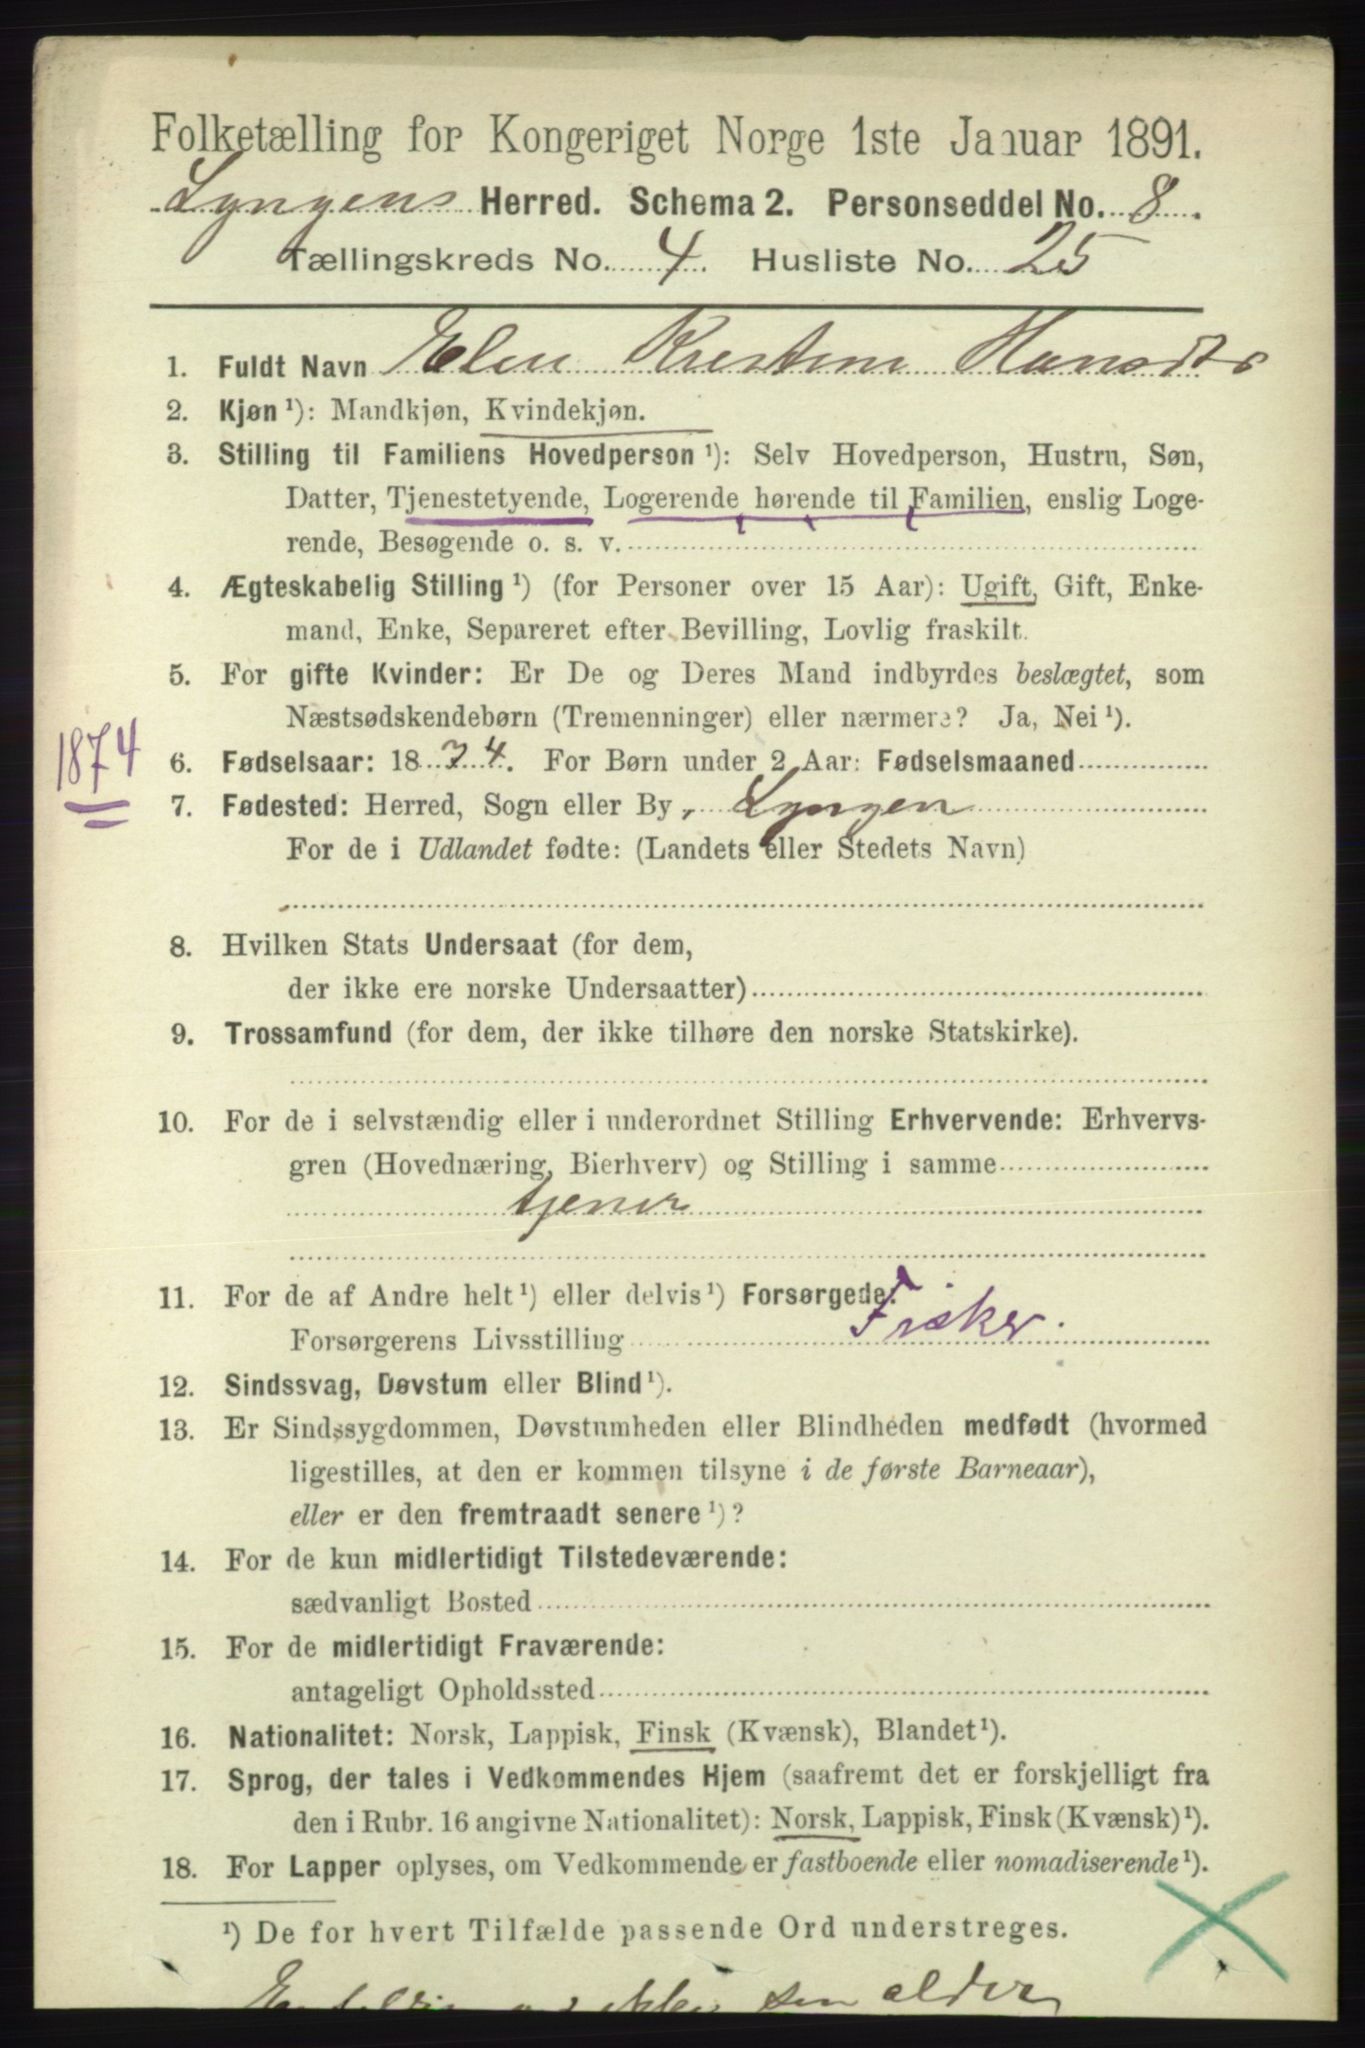 Folketælling for Kongeriget Norge 1ste Januar 1891.
Lyngens Herred. Schema 2. Personseddel No. 8.
Tællingskreds No. 4. Husliste No. 25
1. Fuldt Navn Elen Kristine Hansdtr
2. Kjøn ¹): Mandkjøn, Kvindekjøn.
3. Stilling til Familiens Hovedperson ¹): Selv Hovedperson, Hustru, Søn,
Datter, Tjenestetyende, Logerende hørende til Familien, enslig Loge-
rende, Besøgende o. s. v.
4. Ægteskabelig Stilling ¹) (for Personer over 15 Aar): Ugift, Gift, Enke-
mand, Enke, Separeret efter Bevilling, Lovlig fraskilt.
5. For gifte Kvinder: Er De og Deres Mand indbyrdes beslægtet, som
Næstsødskendebørn (Tremenninger) eller nærmere? Ja, Nei ¹).
1874
6. Fødselsaar: 1874. For Børn under 2 Aar: Fødselsmaaned
7. Fødested: Herred, Sogn eller By, Lyngen
For de i Udlandet fødte: (Landets eller Stedets Navn)
8. Hvilken Stats Undersaat (for dem,
der ikke ere norske Undersaatter)
9. Trossamfund (for dem, der ikke tilhøre den norske Statskirke).
10. For de i selvstændig eller i underordnet Stilling Erhvervende: Erhvervs-
gren (Hovednæring, Bierhverv) og Stilling i samme
tjener
11. For de af Andre helt ¹) eller delvis ¹) Forsørgede:
Forsørgerens Livsstilling Fisker.
12. Sindssvag, Døvstum eller Blind ¹).
13. Er Sindssygdommen, Døvstumheden eller Blindheden medfødt (hvormed
ligestilles, at den er kommen tilsyne i de første Barneaar),
eller er den fremtraadt senere ¹)?
14. For de kun midlertidigt Tilstedeværende:
sædvanligt Bosted
15. For de midlertidigt Fraværende:
antageligt Opholdssted
16. Nationalitet: Norsk, Lappisk, Finsk (Kvænsk), Blandet ¹).
17. Sprog, der tales i Vedkommendes Hjem (saafremt det er forskjelligt fra
den i Rubr. 16 angivne Nationalitet): Norsk, Lappisk, Finsk (Kvænsk) ¹).
18. For Lapper oplyses, om Vedkommende er fastboende eller nomadiserende ¹).
¹) De for hvert Tilfælde passende Ord understreges.
ikke sen alder